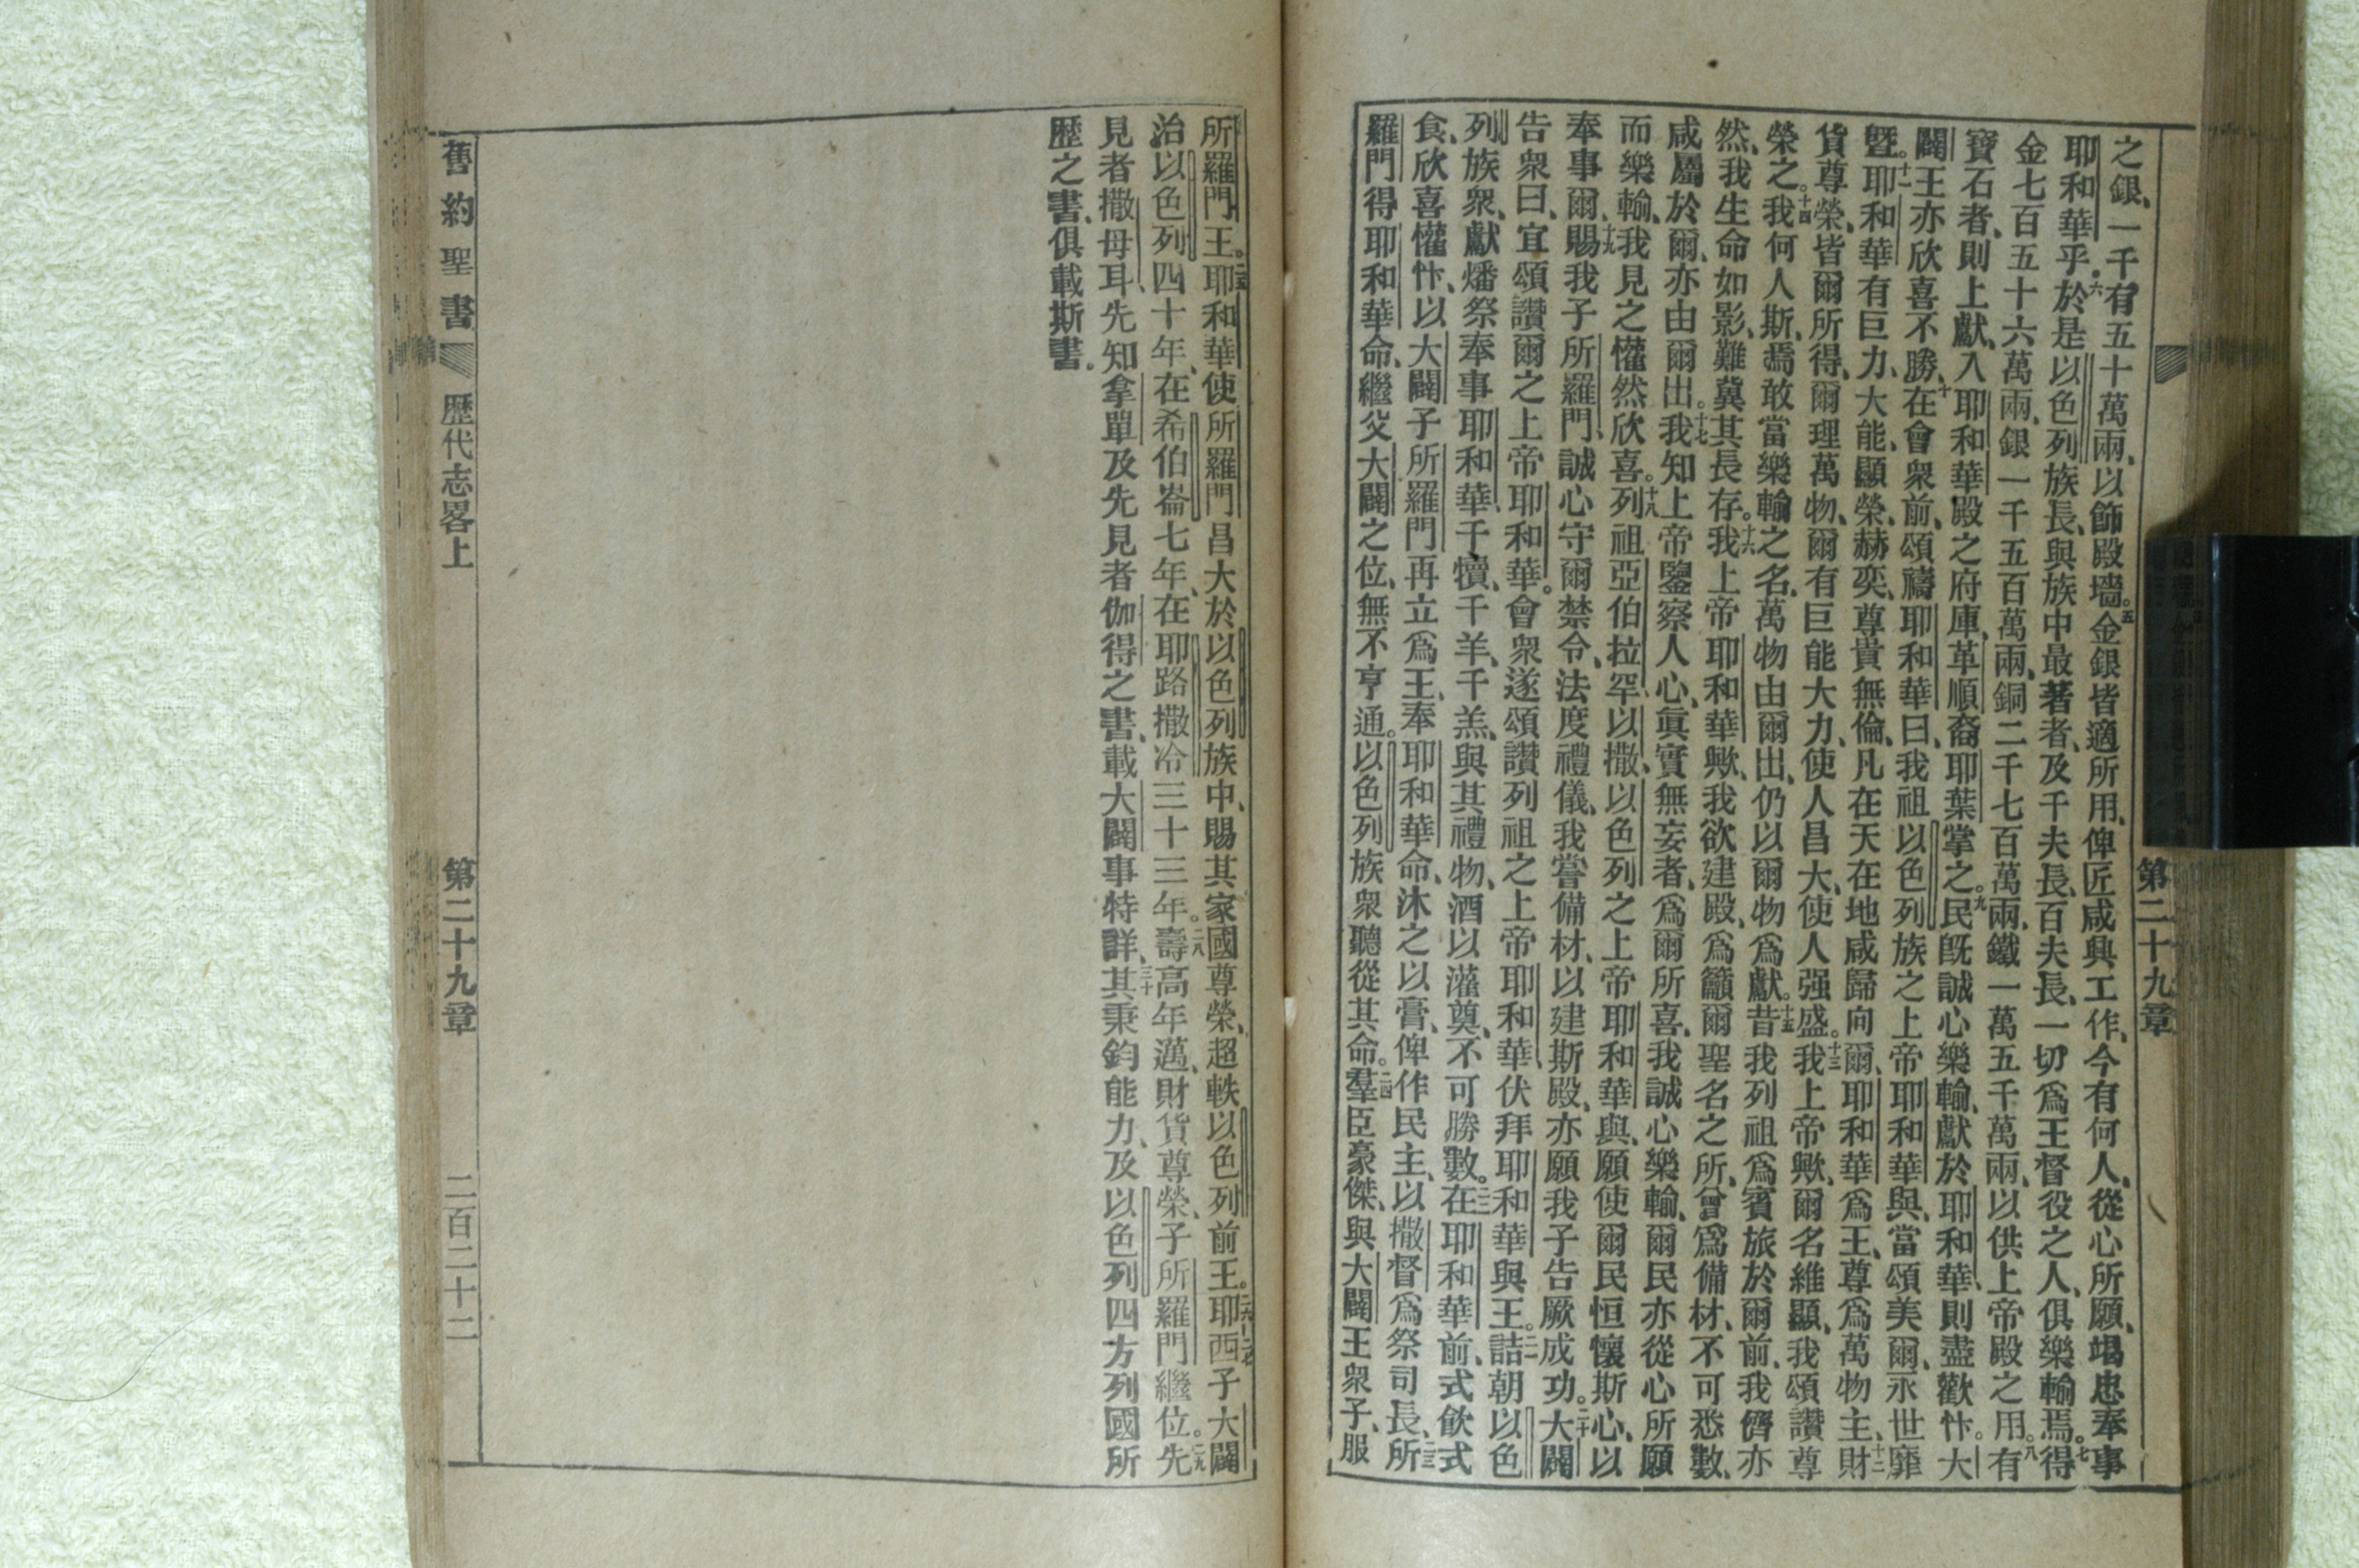 第二十九章
之銀、一千有五十萬兩、以飾殿墻。五金銀皆適所用、俾匠咸興工作、今有何人、從心所願、竭忠奉事
耶和華乎。六於是以色列族長、與族中最著者、及千夫長、百夫長、一切爲王督役之人、俱樂輸焉。七得
金七百五十六萬兩、銀一千五百萬兩、銅二千七百萬兩、鐵一萬五千萬兩、以供上帝殿之用。八有
寶石者、則上獻、入耶和華殿之府庫、革順裔耶葉掌之。九民旣誠心樂輸、獻於耶和華、則盡歡忭、大
闢王亦欣喜不勝、十在會衆前、頌禱耶和華曰、我祖以色列族之上帝耶和華與、當頌美爾、永世靡
曁。十一耶和華有巨力、大能、顯榮、赫奕、尊貴無倫、凡在天在地咸歸向爾、耶和華爲王、尊爲萬物主、十二財
貨尊榮、皆爾所得、爾理萬物、爾有巨能大力、使人昌大、使人强盛。十三我上帝歟、爾名維顯、我頌讚尊
榮之。十四我何人斯、焉敢當樂輸之名、萬物由爾出、仍以爾物爲獻。十五昔我列祖、爲賓旅於爾前、我儕亦
然、我生命如影、難冀其長存。十六我上帝耶和華歟、我欲建殿、爲籲爾聖名之所、曾爲備材、不可悉數、
咸屬於爾、亦由爾出。十七我知上帝鑒察人心、眞實無妄者、爲爾所喜、我誠心樂輸、爾民亦從心所願
而樂輸、我見之懽然欣喜。十八列祖亞伯拉罕、以撒、以色列之上帝耶和華與、願使爾民恒懷斯心、以
奉事爾、十九賜我子所羅門、誠心守爾禁令、法度禮儀、我嘗備材、以建斯殿、亦願我子告厥成功。二十大闢
告衆曰、宜頌讚爾之上帝耶和華。會衆遂頌讚列祖之上帝耶和華、伏拜耶和華與王。二一詰朝以色
列族衆、獻燔祭奉事耶和華、千犢、千羊、千羔、與其禮物、酒以灌奠、不可勝數。二二在耶和華前、式飲式
食、欣喜懽忭、以大闢子所羅門再立爲王、奉耶和華命、沐之以膏、俾作民主、以撒督爲祭司長、二三所
羅門得耶和華命、繼父大闢之位、無不亨通。以色列族衆聽從其命。二四羣臣豪傑、與大闢王衆子、服
所羅門王。二五耶和華使所羅門昌大於以色列族中、賜其家國尊榮、超軼以色列前王。二六二七耶西子大闢
治以色列四十年、在希伯崙七年、在耶路撒冷三十三年。二八壽高年邁、財貨尊榮、子所羅門繼位。二九先
見者撒母耳、先知拿單及先見者伽得之書、載大闢事特詳、三十其秉鈞能力、及以色列四方列國所
歷之書、俱載斯書。
舊約聖書 歷代志畧上 第二十九章 二百二十二